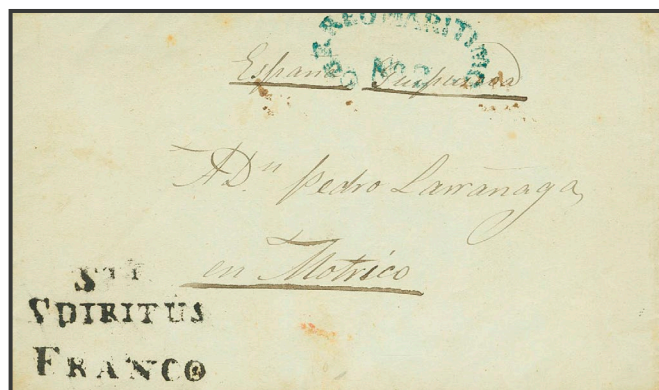 CORREO MARITIMO
España Guipuzcoa
A Dn. Pedro Larrañaga
en Motrico
STI.
SPIRITUS
FRANCO